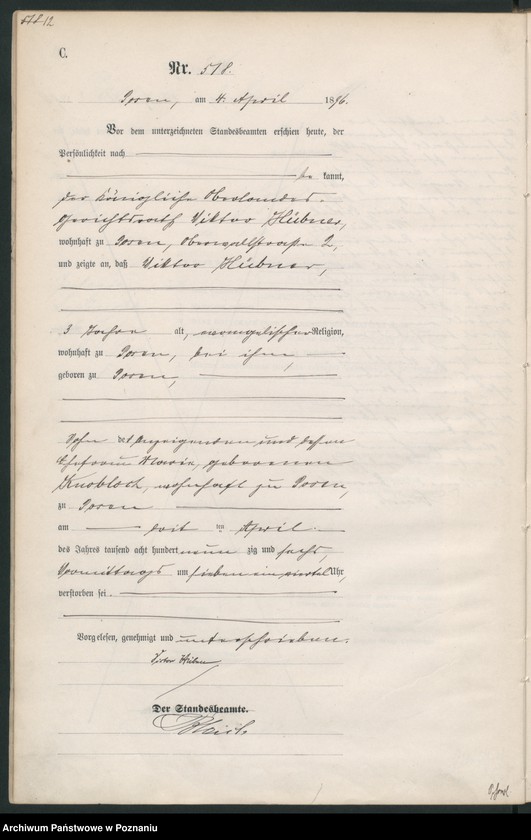 C.
Nr. 518.
Posen, am 4. April 1896.
Vor dem unterzeichneten Standesbeamten erschien heute, der
Persönlichkeit nach
be kannt,
der Königliche Oberlandes-
gerichtsrath Viktor Hübner,
wohnhaft zu Posen, Oberwallstraße 2,
und zeigte an, daß Viktor Hübner,
3 Jahre alt, evangelischer Religion,
wohnhaft zu Posen, bei ihm,
geboren zu Posen,
Sohn des Anzeigenden und dessen
Ehefrau Marie, geborenen
Knobloch, wohnhaft zu Posen,
zu Posen
am ten April
des Jahres tausend acht hundert neun zig und sechs,
Vormittags um sieben ein viertel Uhr,
verstorben sei.
Vorgelesen, genehmigt und unterschrieben.
Victor Hübner
Der Standesbeamte.
Archiwum Państwowe w Poznaniu